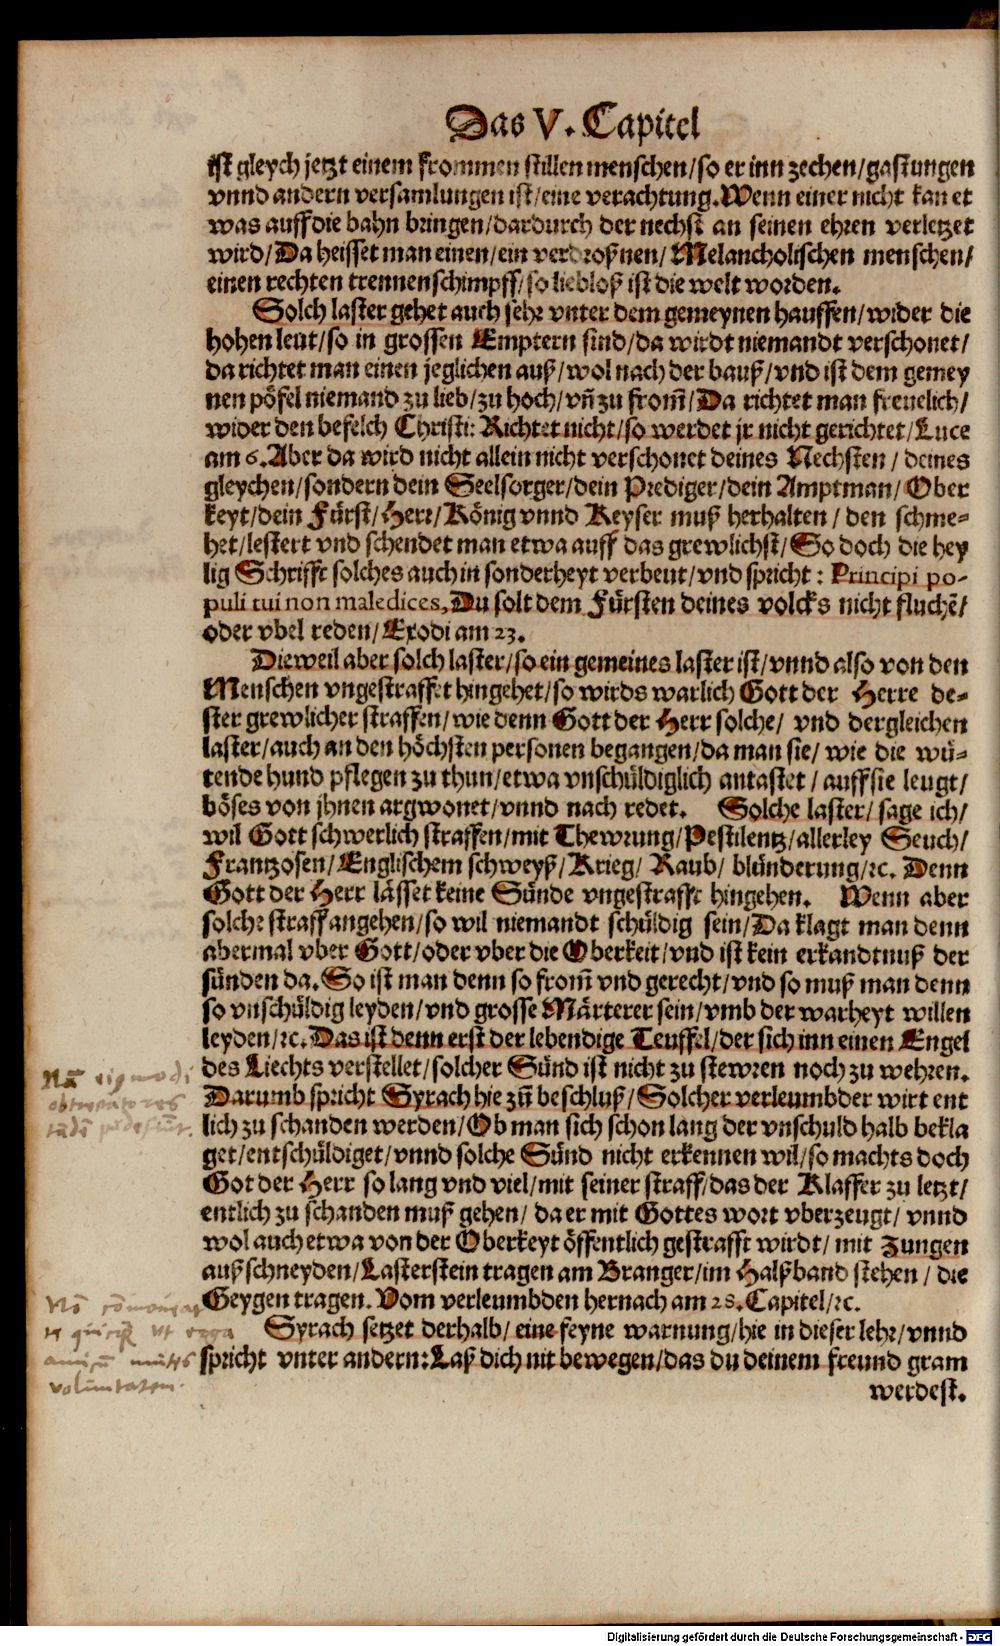 Das V. Capitel
ist gleych jetzt einem frommen stillen menschen/so er inn zechen/gastungen
vnnd andern versamlungen ist/eine verachtung. Wenn einer nicht kan et
was auff die bahn bringen/dardurch der nechst an seinen ehren verletzet
wird/Da heisset man einen/ein verdroßnen/Melancholischen menschen/
einen rechten trennenschimpff/so liebloß ist die welt worden.
Solch laster gehet auch sehr vnter dem gemeynen hauffen/wider die
hohen leut/so in grossen Emptern sind/da wirdt niemandt verschonet/
da richtet man einen jeglichen auß/wol nach der bauß/vnd ist dem gemey
nen pöfel niemand zu lieb/zu hoch/vñ zu from̃/Da richtet man freuelich/
wider den befelch Christi: Richtet nicht/so werdet jr nicht gerichtet/Luce
am 6. Aber da wird nicht allein nicht verschonet deines Nechsten/deines
gleychen/sondern dein Seelsorger/dein Prediger/dein Amptman/Ober
keyt/dein Fürst/Herr/König vnnd Keyser muß herhalten/den schme-
het/lestert vnd schendet man etwa auff das grewlichst/So doch die hey
lig Schrifft solches auch in sonderheyt verbeut/vnd spricht: Principi po-
puli tui non maledices, Du solt dem Fürsten deines volcks nicht fluchẽ/
oder vbel reden/Exodi am 23.
Dieweil aber solch laster/so ein gemeines laster ist/vnnd also von den
Menschen vngestraffet hingehet/so wirds warlich Gott der Herre de-
ster grewlicher straffen/wie denn Gott der Herr solche/vnd dergleichen
laster/auch an den höchsten personen begangen/da man sie/wie die wü-
tende hund pflegen zu thun/etwa vnschüldiglich antastet/auff sie leugt/
böses von jhnen argwonet/vnnd nach redet. Solche laster/sage ich/
wil Gott schwerlich straffen/mit Thewrung/Pestilentz/allerley Seuch/
Frantzosen/Englischem schweyß/Krieg/Raub/blünderung/ꝛc. Denn
Gott der Herr lässet keine Sünde vngestrafft hingehen. Wenn aber
solche straff angehen/so wil niemandt schüldig sein/Da klagt man denn
abermal vber Gott/oder vber die Oberkeit/vnd ist kein erkandtnuß der
sünden da. So ist man denn so from̃ vnd gerecht/vnd so muß man denn
so vnschüldig leyden/vnd grosse Märterer sein/vmb der warheyt willen
leyden/ꝛc. Das ist denn erst der lebendige Teuffel/der sich inn einen Engel
des Liechts verstellet/solcher Sünd ist nicht zu stewren noch zu wehren.
Darumb spricht Syrach hie zũ beschluß/Solcher verleumbder wirt ent
lich zu schanden werden/Ob man sich schon lang der vnschuld halb bekla
get/entschüldiget/vnnd solche Sünd nicht erkennen wil/so machts doch
Got der Herr so lang vnd viel/mit seiner straff/das der Klaffer zu letzt/
entlich zu schanden muß gehen/da er mit Gottes wort vberzeugt/vnnd
wol auch etwa von der Oberkeyt öffentlich gestrafft wirdt/mit Zungen
außschneyden/Lasterstein tragen am Branger/im Halßband stehen/die
Geygen tragen. Vom verleumbden hernach am 28. Capitel/ꝛc.
Syrach setzet derhalb/eine feyne warnung/hie in dieser lehr/vnnd
spricht vnter andern: Laß dich nit bewegen/das du deinem freund gram
werdest.
obtrectatores
voluntatem.
Digitalisierung gefördert durch die Deutsche Forschungsgemeinschaft - DFG